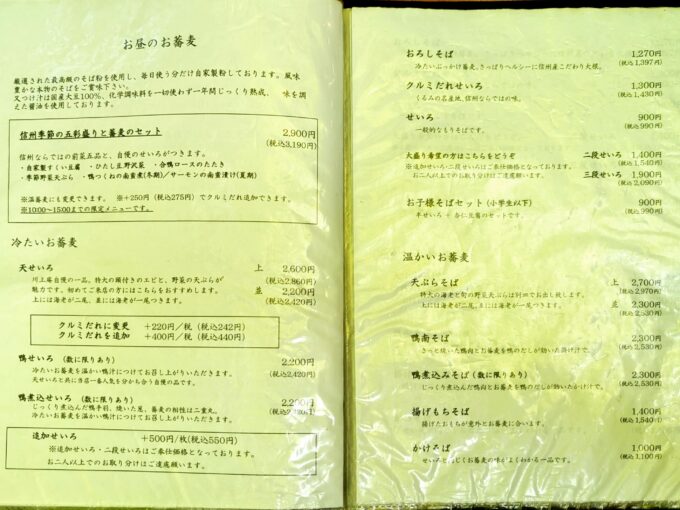 お昼のお蕎麦
厳選された最高級のそば粉を使用し、毎日使う分だけ自家製粉しております。風味
豊かな本物のそばをご賞味下さい。
又つけ汁は国産大豆100%、化学調味料を一切使わず一年間じっくり熟成、 味を調
えた醤油を使用しております。
信州季節の五彩盛りと蕎麦のセット 2,900円
(税込3,190円)
信州ならではの前菜五品と、自慢のせいろがつきます。
・自家製すくい豆腐 ・ひたし豆野沢菜 ・合鴨ロースのたたき
・季節野菜天ぷら ・鴨つくねの南蛮煮(冬期)/サーモンの南蛮漬け(夏期)
※温蕎麦にも変更できます。 ※+250円(税込275円)でクルミだれ追加できます。
※10:00~15:00までの限定メニューです。
冷たいお蕎麦
天せいろ 上 2,600円
(税込2,860円)
川上庵自慢の一品。特大の頭付きのエビと、野菜の天ぷらが
魅力です。初めてご来店の方にはこちらをおすすめします。
上には海老が二尾、並には海老が一尾つきます。
並 2,200円
(税込2,420円)
クルミだれに変更 +220円/税 (税込242円)
クルミだれを追加 +400円/税 (税込440円)
鴨せいろ (数に限りあり) 2,200円
(税込2,420円)
冷たいお蕎麦を温かい鴨汁につけてお召し上がりいただきます。
天せいろと共に当店一番人気を分かち合う自慢の品です。
鴨煮込せいろ (数に限りあり) 2,200円
(税込2,420円)
じっくり煮込んだ鴨手羽、焼いた葱、蕎麦の相性は二重丸。
冷たいお蕎麦を温かい鴨汁につけてお召し上がりいただきます。
追加せいろ +500円/枚(税込550円)
※追加せいろ・二段せいろはご奉仕価格となっております。
お二人以上でのお取り分けはご遠慮願います。
おろしそば 1,270円
(税込1,397円)
冷たいぶっかけ蕎麦。さっぱりヘルシーに信州産こだわり大根。
クルミだれせいろ 1,300円
(税込1,430円)
くるみの名産地、信州ならではの味。
せいろ 900円
(税込990円)
一般的なもりそばです。
大盛り希望の方はこちらをどうぞ 二段せいろ 1,400円
(税込1,540円)
※追加せいろ・二段せいろはご奉仕価格となっております。
お二人以上でのお取り分けはご遠慮願います。
三段せいろ 1,900円
(税込2,090円)
お子様そばセット(小学生以下) 900円
(税込990円)
半せいろ + 杏仁豆腐のセットです。
温かいお蕎麦
天ぷらそば 上 2,700円
(税込2,970円)
特大の海老と旬の野菜天ぷらは別皿でお出し致します。
上には海老が二尾、並には海老が一尾つきます。
並 2,300円
(税込2,530円)
鴨南そば 2,300円
(税込2,530円)
さっと焼いた鴨肉とお蕎麦を鴨のだしが効いた掛け汁で。
鴨煮込みそば(数に限りあり) 2,300円
(税込2,530円)
じっくり煮込んだ鴨肉とお蕎麦を鴨のだしが効いたかけ汁で。
揚げもちそば 1,400円
(税込1,540円)
揚げたおもちが意外とお蕎麦に合います。
かけそば 1,000円
(税込1,100円)
せいろと同じくお蕎麦の味がよくわかる一品です。